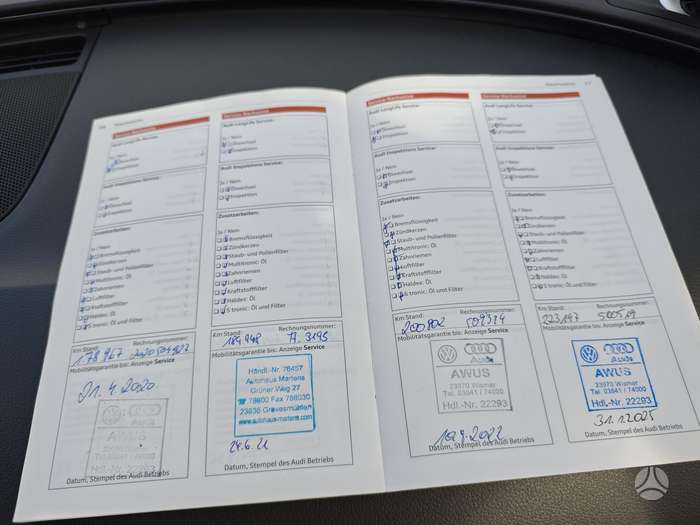 Service-Nachweise
Audi LongLife Service:
Ja / Nein
Ölwechsel
Inspektion
Audi Inspektions Service:
Ja / Nein
Ölwechsel
Inspektion
Zusatzarbeiten:
Ja / Nein
Bremsflüssigkeit
Zündkerzen
Staub- und Pollenfilter
Multitronic: Öl
Zahnriemen
Luftfilter
Kraftstofffilter
Haldex: Öl
S tronic: Öl und Filter
Km Stand: Rechnungsnummer:
178 967
Mobilitätsgarantie bis: Anzeige Service
21.4.2020
Audi
AWUS
Hdl.-Nr. 22293
Datum, Stempel des Audi Betriebs
Service-Nachweise
Audi LongLife Service:
Ja / Nein
Ölwechsel
Inspektion
Audi Inspektions Service:
Ja / Nein
Ölwechsel
Inspektion
Zusatzarbeiten:
Ja / Nein
Bremsflüssigkeit
Zündkerzen
Staub- und Pollenfilter
Multitronic: Öl
Zahnriemen
Luftfilter
Kraftstofffilter
Haldex: Öl
S tronic: Öl und Filter
Km Stand: Rechnungsnummer:
Mobilitätsgarantie bis: Anzeige Service
Händl.-Nr. 76457
Autohaus Martens
Grüner Weg 27
☎ 78600 Fax 786030
23936 Grevesmühlen
www.autohaus-martens.com
24.6.21
Datum, Stempel des Audi Betriebs
Service-Nachweise
Audi LongLife Service:
Ja / Nein
Ölwechsel
Inspektion
Audi Inspektions Service:
Ja / Nein
Ölwechsel
Inspektion
Zusatzarbeiten:
Ja / Nein
Bremsflüssigkeit
Zündkerzen
Staub- und Pollenfilter
Multitronic: Öl
Zahnriemen
Luftfilter
Kraftstofffilter
Haldex: Öl
S tronic: Öl und Filter
Km Stand: Rechnungsnummer:
200802 509314
Mobilitätsgarantie bis: Anzeige Service
Audi
AWUS
23970 Wismar
Tel. 03841 / 74000
Hdl.-Nr. 22293
Datum, Stempel des Audi Betriebs
Service-Nachweise
17
Audi LongLife Service:
Ja / Nein
Ölwechsel
Inspektion
Audi Inspektions Service:
Ja / Nein
Ölwechsel
Inspektion
Zusatzarbeiten:
Ja / Nein
Bremsflüssigkeit
Zündkerzen
Staub- und Pollenfilter
Multitronic: Öl
Zahnriemen
Luftfilter
Kraftstofffilter
Haldex: Öl
S tronic: Öl und Filter
Km Stand: Rechnungsnummer:
223147 500519
Mobilitätsgarantie bis: Anzeige Service
Audi
AWUS
23970 Wismar
Tel. 03841 / 74000
Hdl.-Nr. 22293
31.1.2025
Datum, Stempel des Audi Betriebs